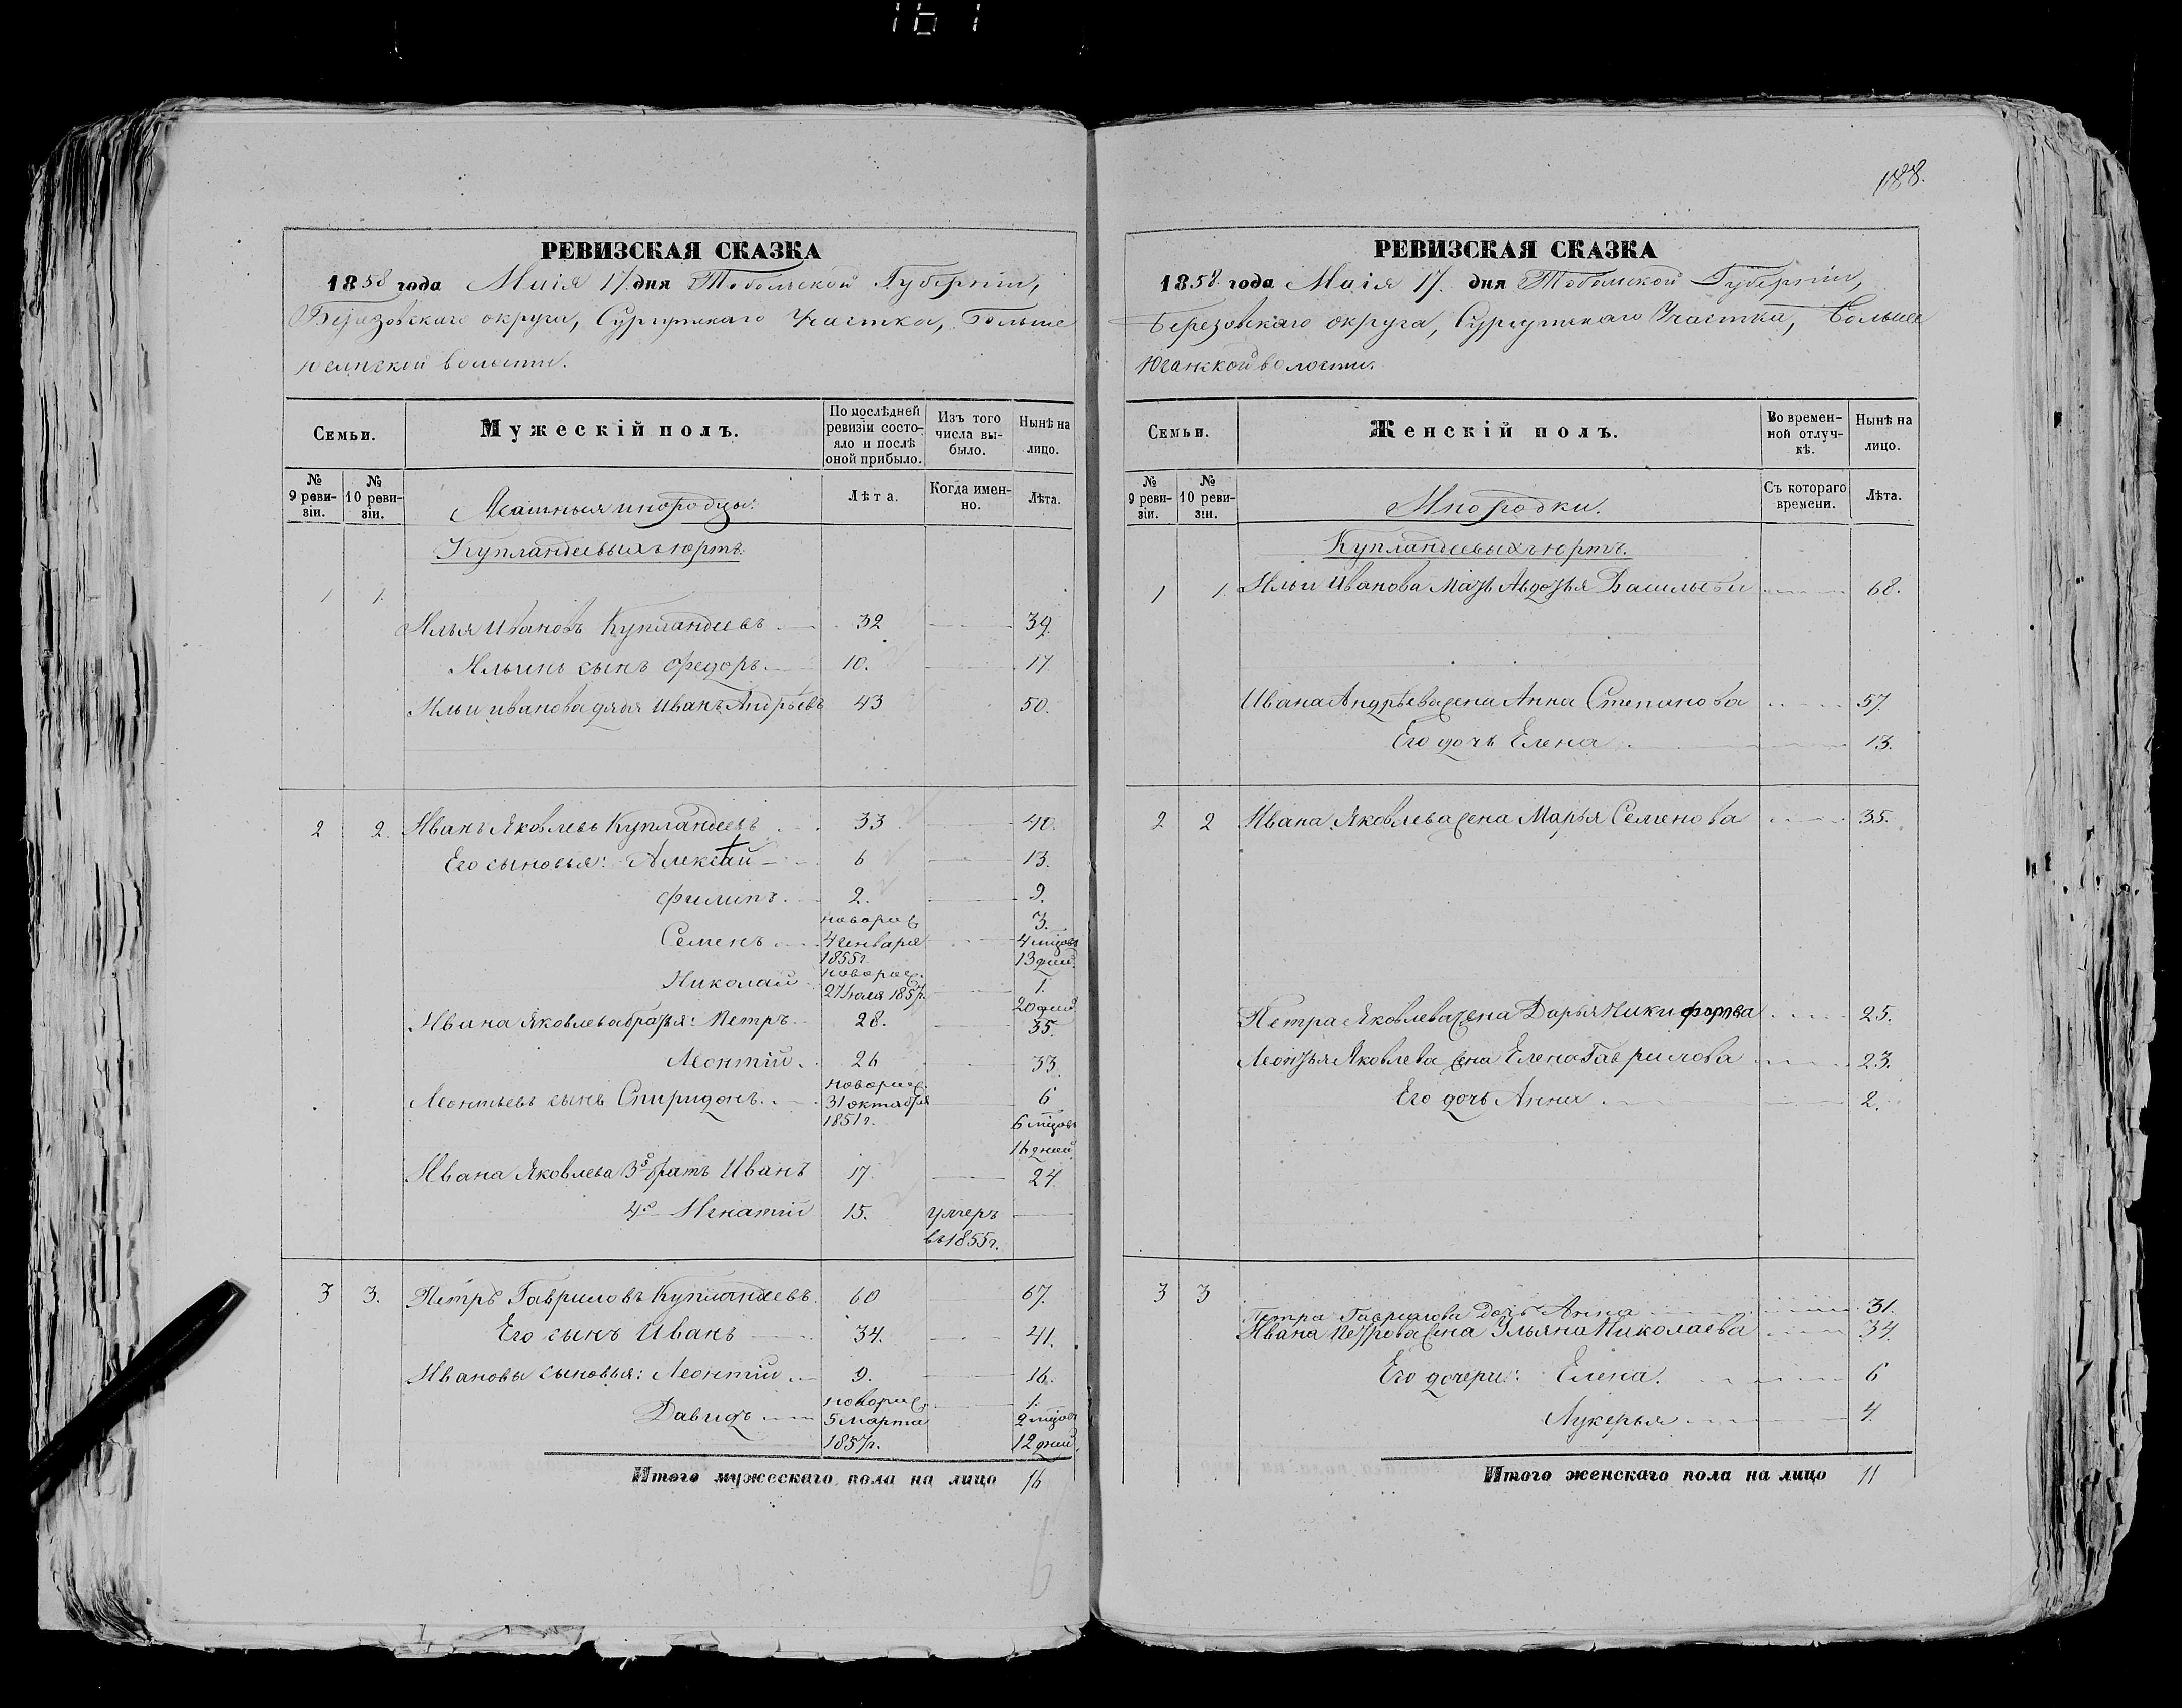 161
188.
РЕВИЗСКАЯ СКАЗКА
1858 года Маія 17 дня Тобольской Губерніи,
Березовскаго округа, Сургутскаго Участка, Больше
Юганской волости.
Семьи.
Мужескій полъ.
По послѣдней ревизіи состояло и послѣ оной прибыло.
Изъ того числа выбыло.
Нынѣ на лицо.
№ 9 ревизіи.
№ 10 ревизіи.
инородцы.
Лѣта.
Когда именно.
Лѣта.
Купландеевыхъ юртъ.
1 1.
Илья Ивановъ Купландеевъ 32 39.
Ильинъ сынъ Федоръ. 10. 17
Ильи Иванова дядя Иванъ Андрѣевъ 43 50.
2 2. Иванъ Яковлевъ Купландеевъ 33 40.
Его сыновья: Алексѣй 6 13.
Филипъ. 2. 9.
Семенъ новорож 4 Генваря 1855г. 3. 4 мѣсяцъ 13 дней.
Николай новорож. 27 Апреля 1857г. 1. 20 дней
Ивана Яковлева братья: Петръ 28. 35.
Леонтій. 26 33.
Леонтьевъ сынъ Спиридонъ. новорож. 31 октября 1851г. 6 6 мѣсяцъ 16 дней
Ивана Яковлева 3й братъ Иванъ 17. 24.
4й Игнатій 15. умеръ въ 1855г.
3 3. Петръ Гавриловъ Купландеевъ 60 67.
Его сынъ Иванъ 34. 41.
Ивановы сыновья: Леонтій 9. 16.
Давидъ новорож. 5 Марта 1857г. 1. 2 мѣсяцъ 12 дней.
Итого мужескаго пола на лицо 16
РЕВИЗСКАЯ СКАЗКА
1858 года Маія 17. дня Тобольской Губерніи,
Березовскаго округа, Сургутскаго Участка, Больше
Юганской волости.
Семьи.
Женскій полъ.
Во временной отлучкѣ.
Нынѣ на лицо.
№ 9 ревизіи.
№ 10 ревизіи.
Инородки.
Съ котораго времени.
Лѣта.
Купландеевыхъ юртъ.
1 1. Ильи Иванова мать Авдотья Васильева 68.
Ивана Андрѣева жена Анна Степанова 57.
Его дочь Елена 13.
2 2 Ивана Яковлева жена Марья Семенова 35.
Петра Яковлева жена Дарья Никифорова 25.
Леонтья Яковлева жена Елена Гаврилова 23.
Его дочь Анна 2.
3 3
Петра Гаврилова дочь Анна 31.
Ивана Петрова жена Ульяна Николаева 34.
Его дочери: Елена. 6
Лукерья 4.
Итого женскаго пола на лицо 11